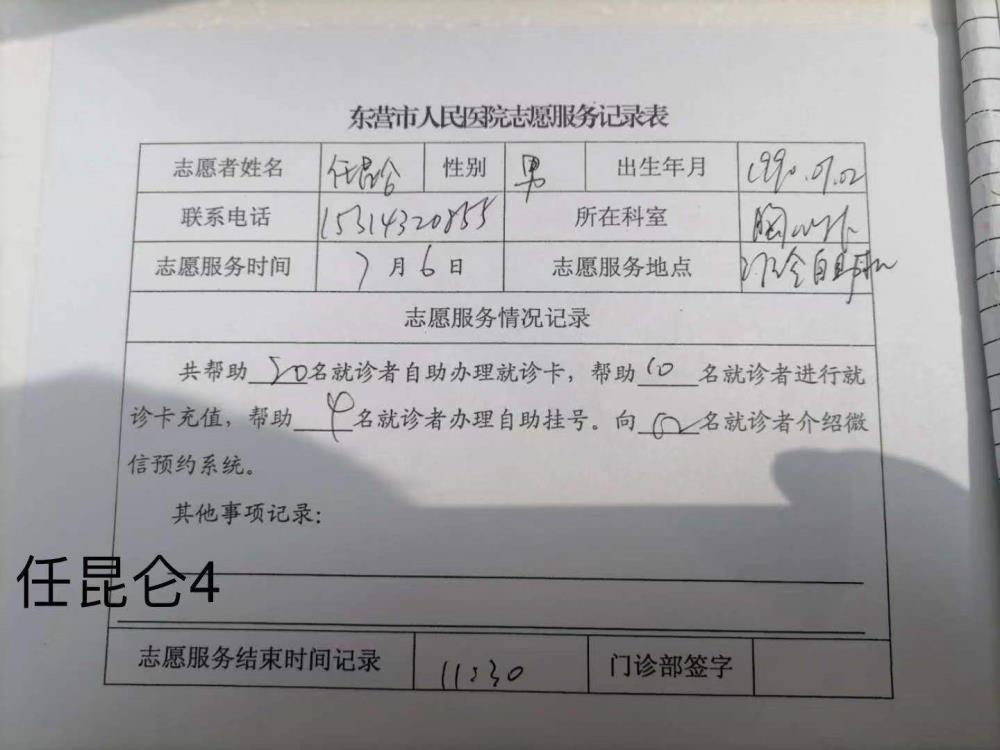 东营市人民医院志愿服务记录表
志愿者姓名 任昆仑 性别 男 出生年月 1990.07.02
联系电话 15314320855 所在科室 胸外
志愿服务时间 7月6日 志愿服务地点 门诊自助
志愿服务情况记录
共帮助20名就诊者自助办理就诊卡，帮助10名就诊者进行就
诊卡充值，帮助4名就诊者办理自助挂号。向名就诊者介绍微
信预约系统。
其他事项记录：
任昆仑4
志愿服务结束时间记录 11:30 门诊部签字